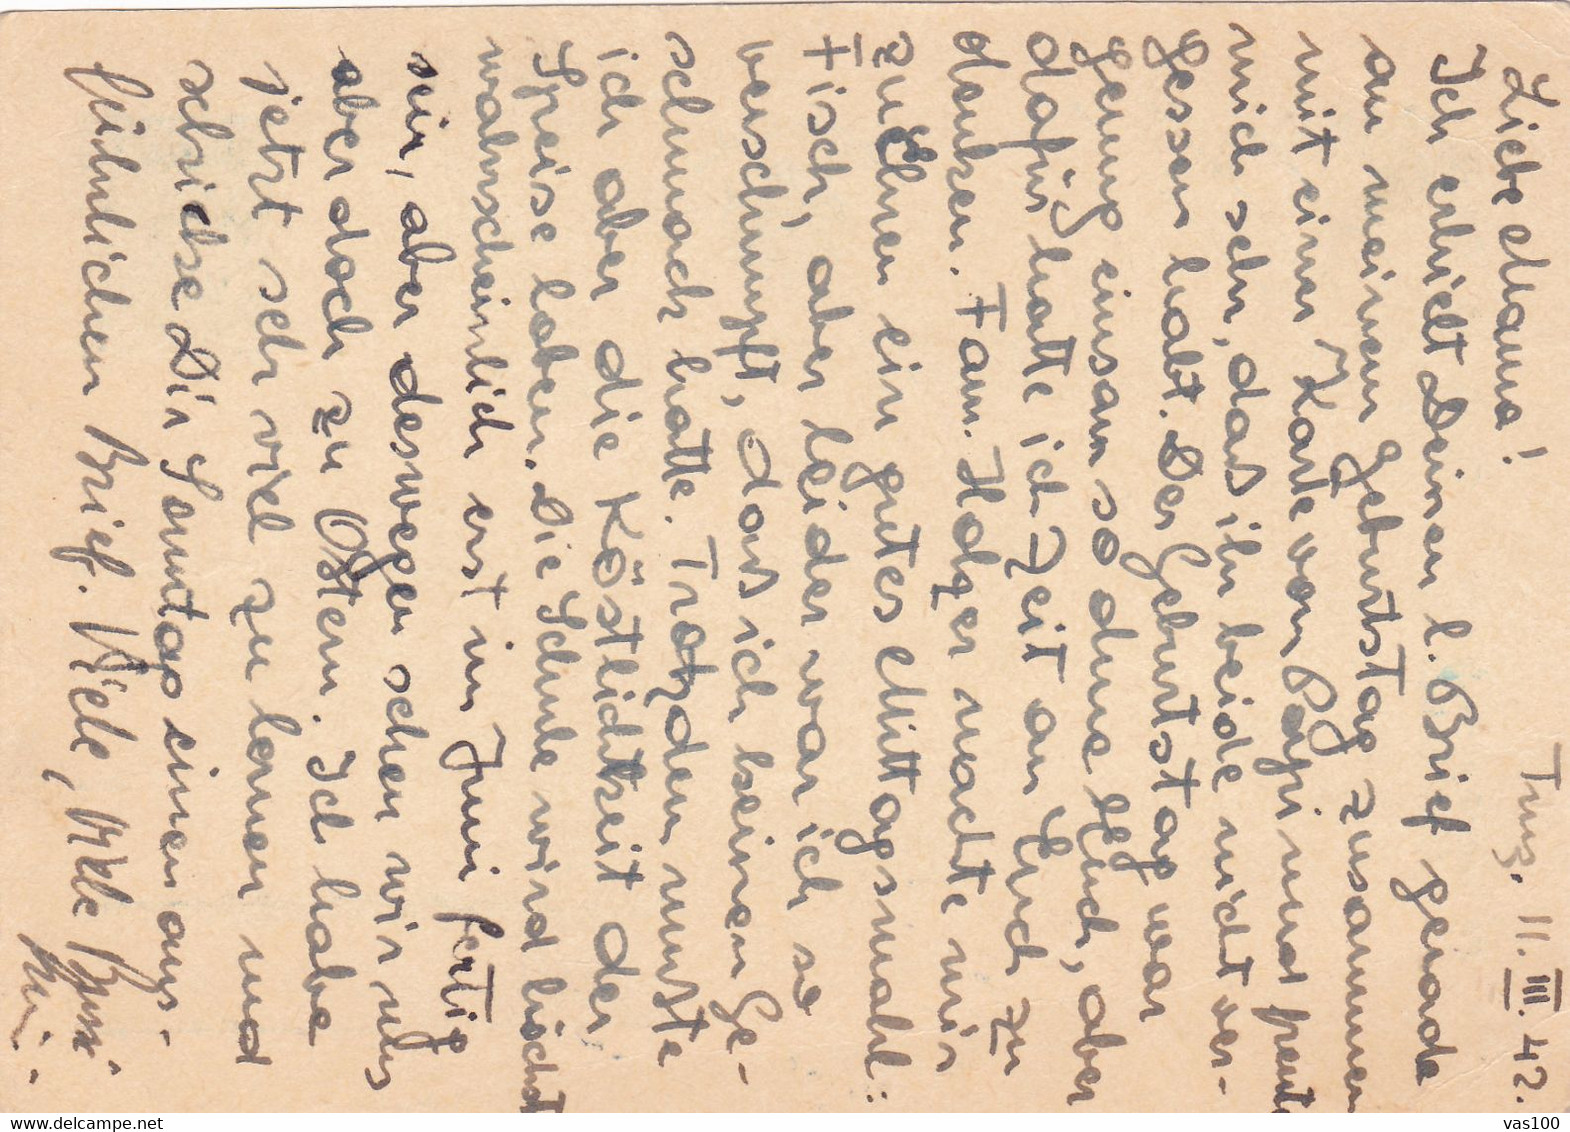 11. III. 42.
Liebe Mama!
Ich erhielt Deinen l. Brief gerade
an meinem Geburtstag zusammen
mit einer Karte von Papi und freute
mich sehr, das ihr beide nicht ver-
gessen habt. Der Geburtstag war
genug einsam so ohne Euch, aber
dafür hatte ich Zeit an Euch zu
denken. Fam. machte mir
zu Ehren ein gutes Mittagsmahl:
Fisch, aber leider war ich so
verschnupft, das ich keinen Ge-
schmack hatte. Trotzdem musste
ich aber die Köstlichkeit der
Speise loben. Die Schule wird höchst
wahrscheinlich erst im Juni fertig
sein, aber deswegen sehen wir uns
aber doch zu Ostern. Ich habe
jetzt sehr viel zu lernen und
schicke Dir Sonntag einen aus-
führlichen Brief. Viele, viele Bussi
vas100